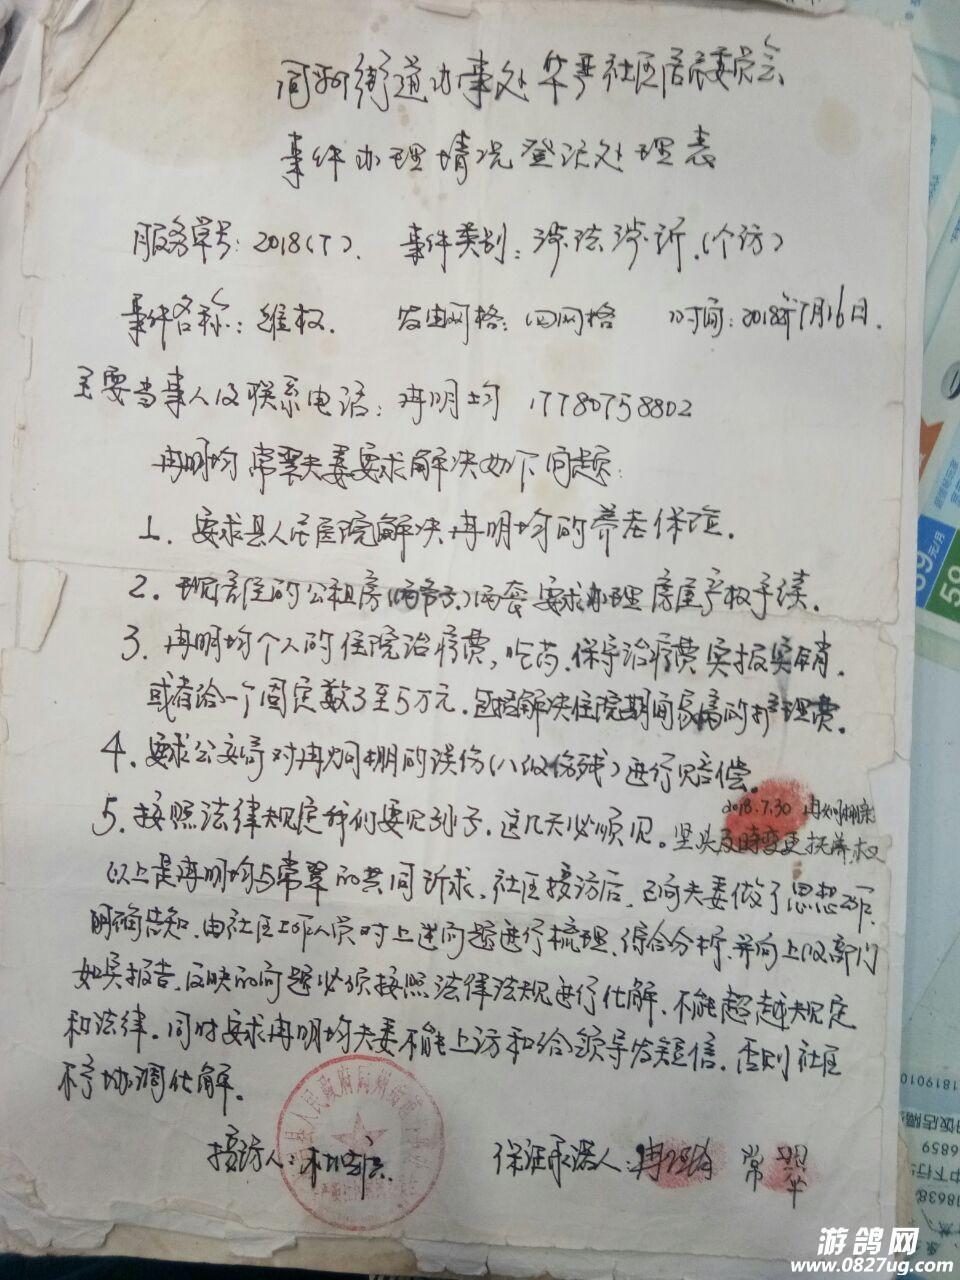 同州街道办事处华严社区居民委员会
事件办理情况登记处理表
服务单号:2018(7). 事件类别:涉法涉诉.(个访)
事件名称:维权. 发由网格:四网格 时间:2018年7月16日.
主要当事人及联系电话:冉明均 17780758802
冉明均常翠夫妻要求解决如下问题:
1. 要求县人民医院解决冉明均的养老保险.
2. 现居住的公租房()两套要求办理房屋产权手续.
3. 冉明均个人的住院治疗费,吃药.保守治疗费实报实销.
或者给一个固定数3至5万元.包括解决住院期间家属的护理费.
4. 要求公安局对冉炯棚的误伤(八级伤残)进行赔偿.
2018.7.30 冉炯棚亲
5. 按照法律规定我们要见孙子.这几天必须见.坚决及时变更抚养权
以上是冉明均与常翠的共同诉求.社区接访后,已向夫妻做了思想工作.
明确告知.由社区工作人员对上述问题进行梳理.综合分析.并向上级部门
如实报告.反映的问题必须按照法律法规进行化解.不能超越规定
和法律.同时要求冉明均夫妻不能上访和给领导发短信.否则社区
不予协调化解.
接访人: 保证承诺人:冉明均 常翠
游鸽网
www.0827ug.com